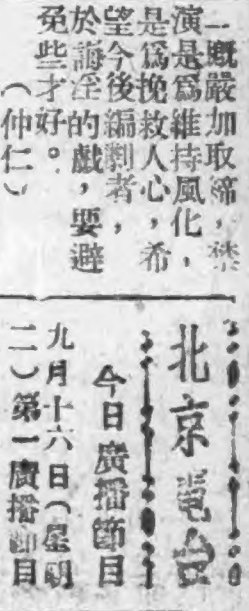 一概嚴加取締，禁
演是爲維持風化，
是爲挽救人心，希
望今後編劇者，
於誨淫的戲，要避
免些才好。
（仲仁）
北京電台
今日廣播節目
九月十六日（星期
二）第一廣播節目